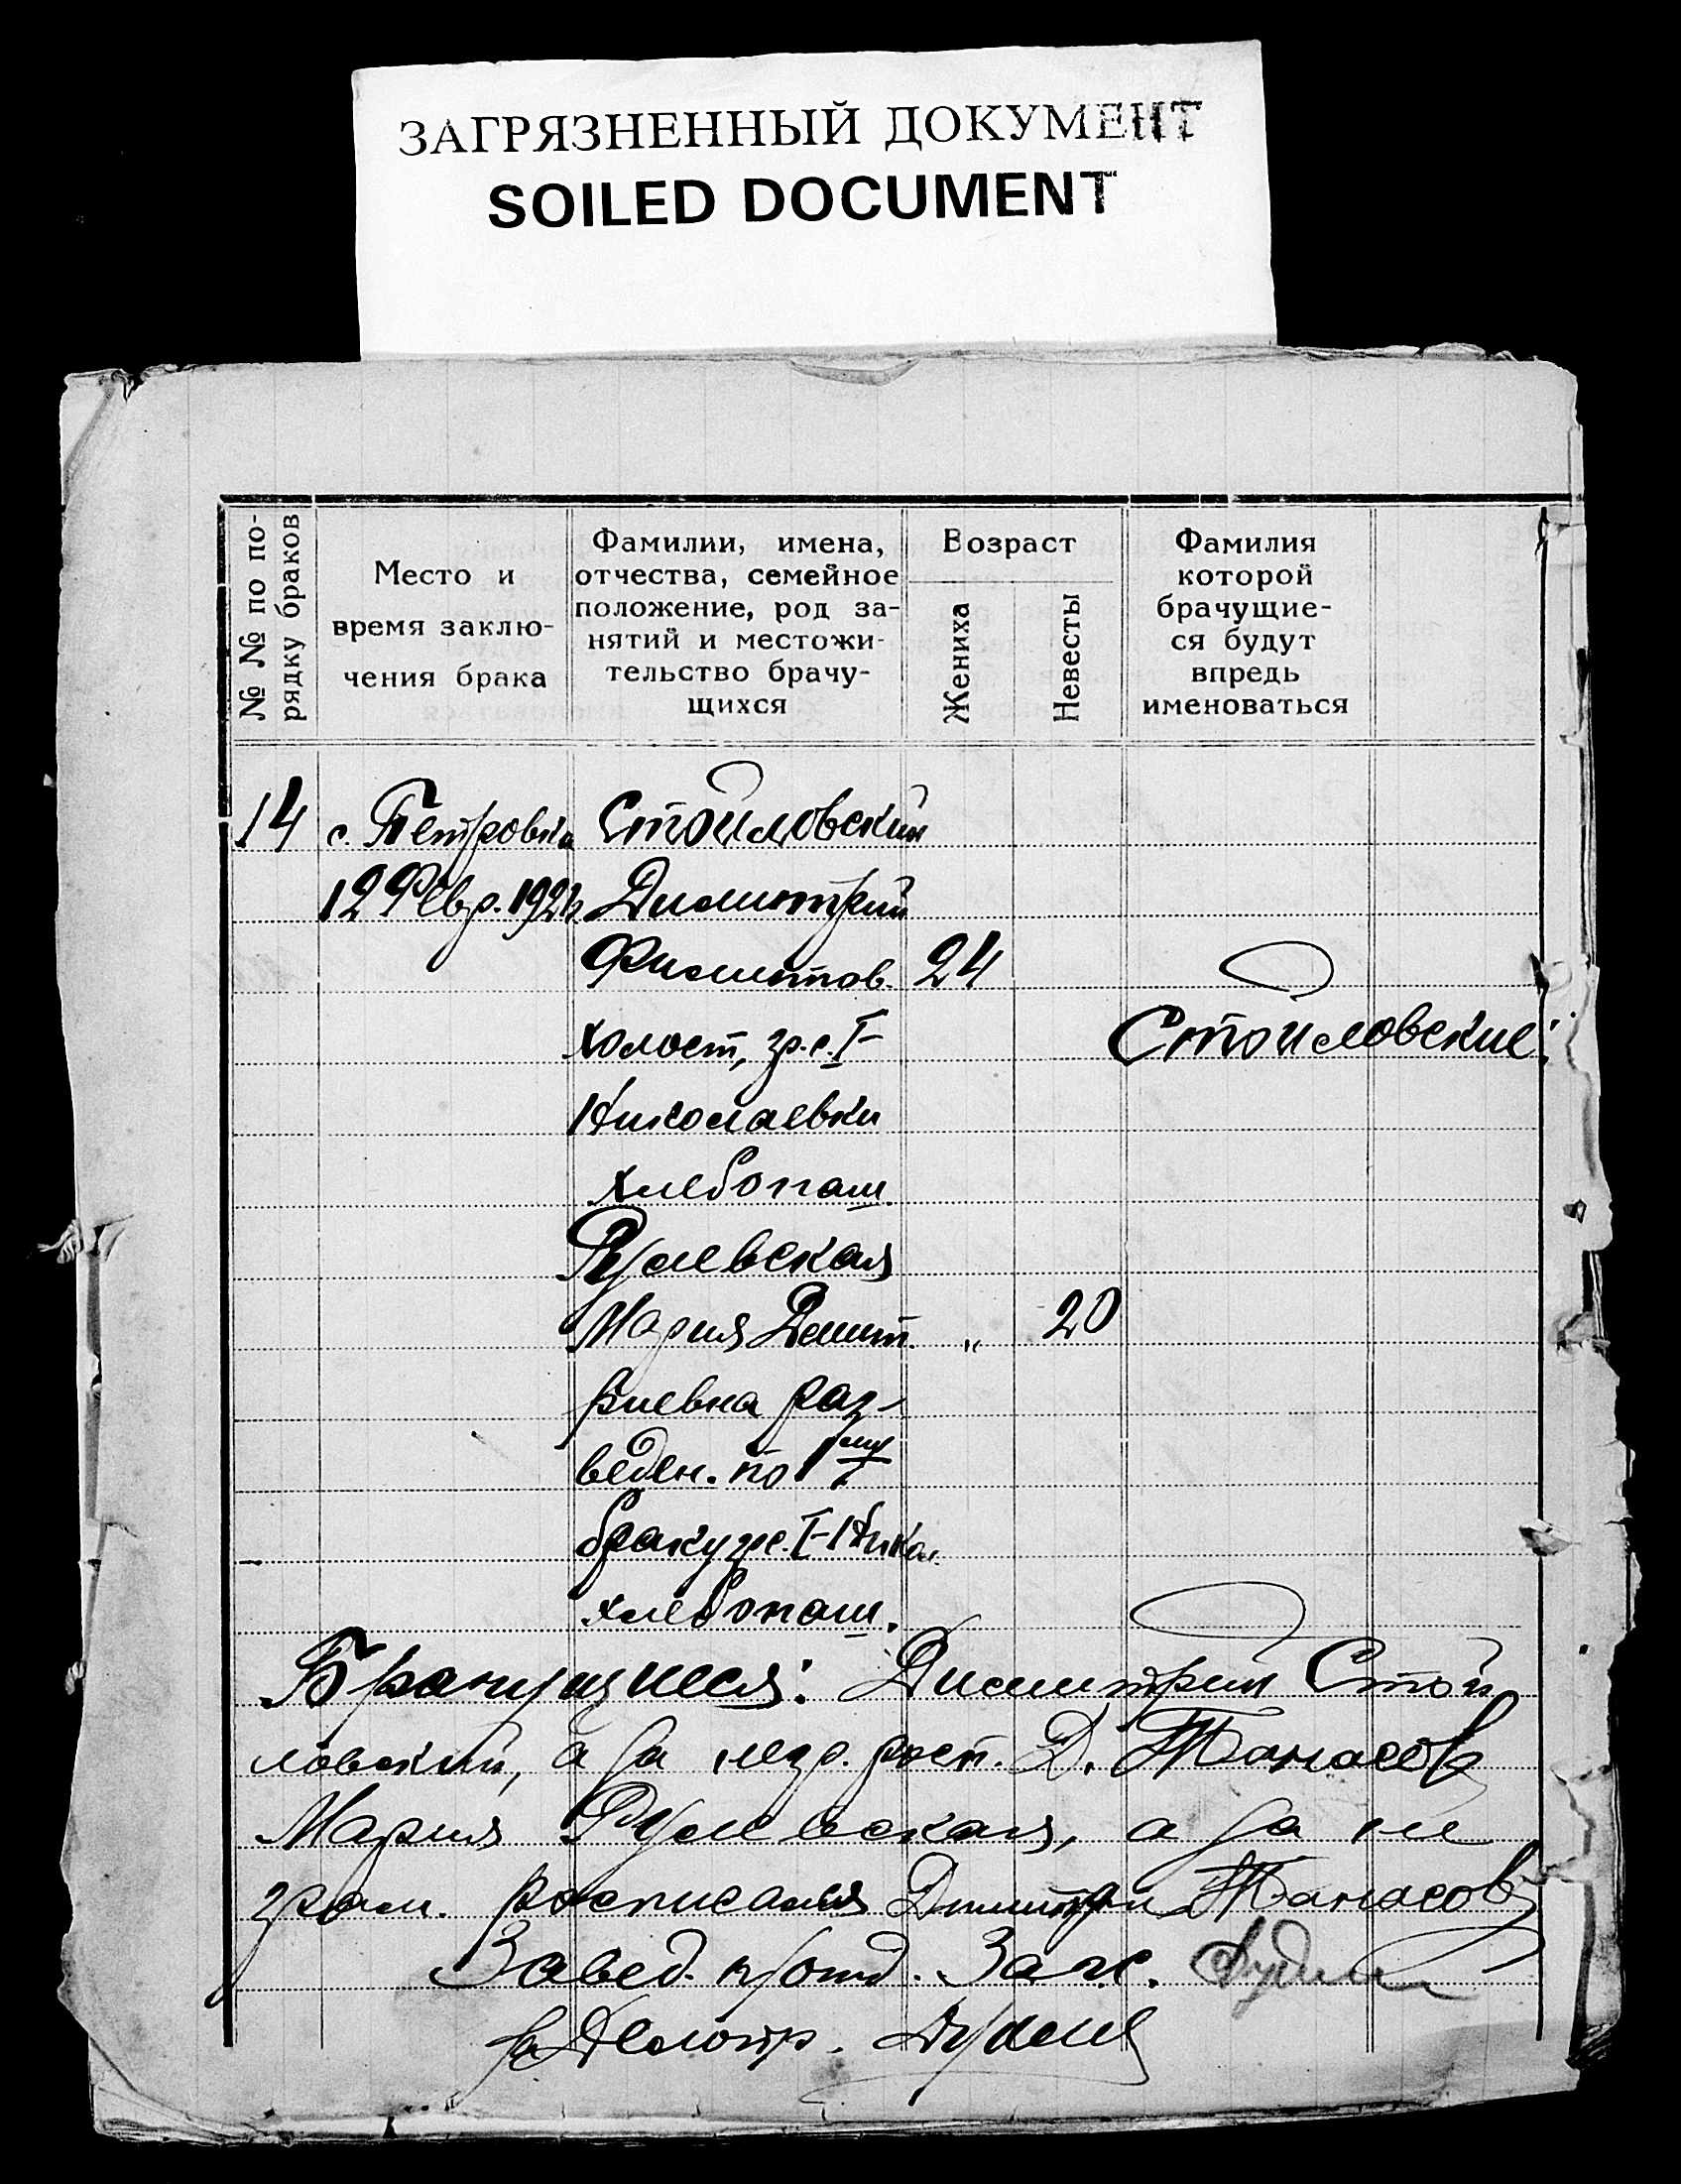 ЗАГРЯЗНЕННЫЙ ДОКУМЕНТ
SOILED DOCUMENT
№ № по по-
рядку браков
Место и
время заклю-
чения брака
Фамилии, имена,
отчества, семейное
положение, род за-
нятий и местожи-
тельство брачу-
щихся
Возраст
Жениха
Невесты
Фамилия
которой
брачущие-
ся будут
впредь
именоваться
14 с. Петровка Стоиловский
12 Февр. 192 Димитрий
Филиппов. 24
холост, гр. с. I-
Стоиловские
Николаевки
хлебопаш.
Рулевская
Мария Димит. " 20
риевна раз-
веден. по 1му
браку гр. с. I-Никол.
хлебопаш.
Брачущиеся: Димитрий Стои
ловский, а за негр. росп. Д. Танасов
Мария Рулевская, а за не
грам. росписался Димитрий Танасов
Завед. п/отд. Загс.
за Делопр.